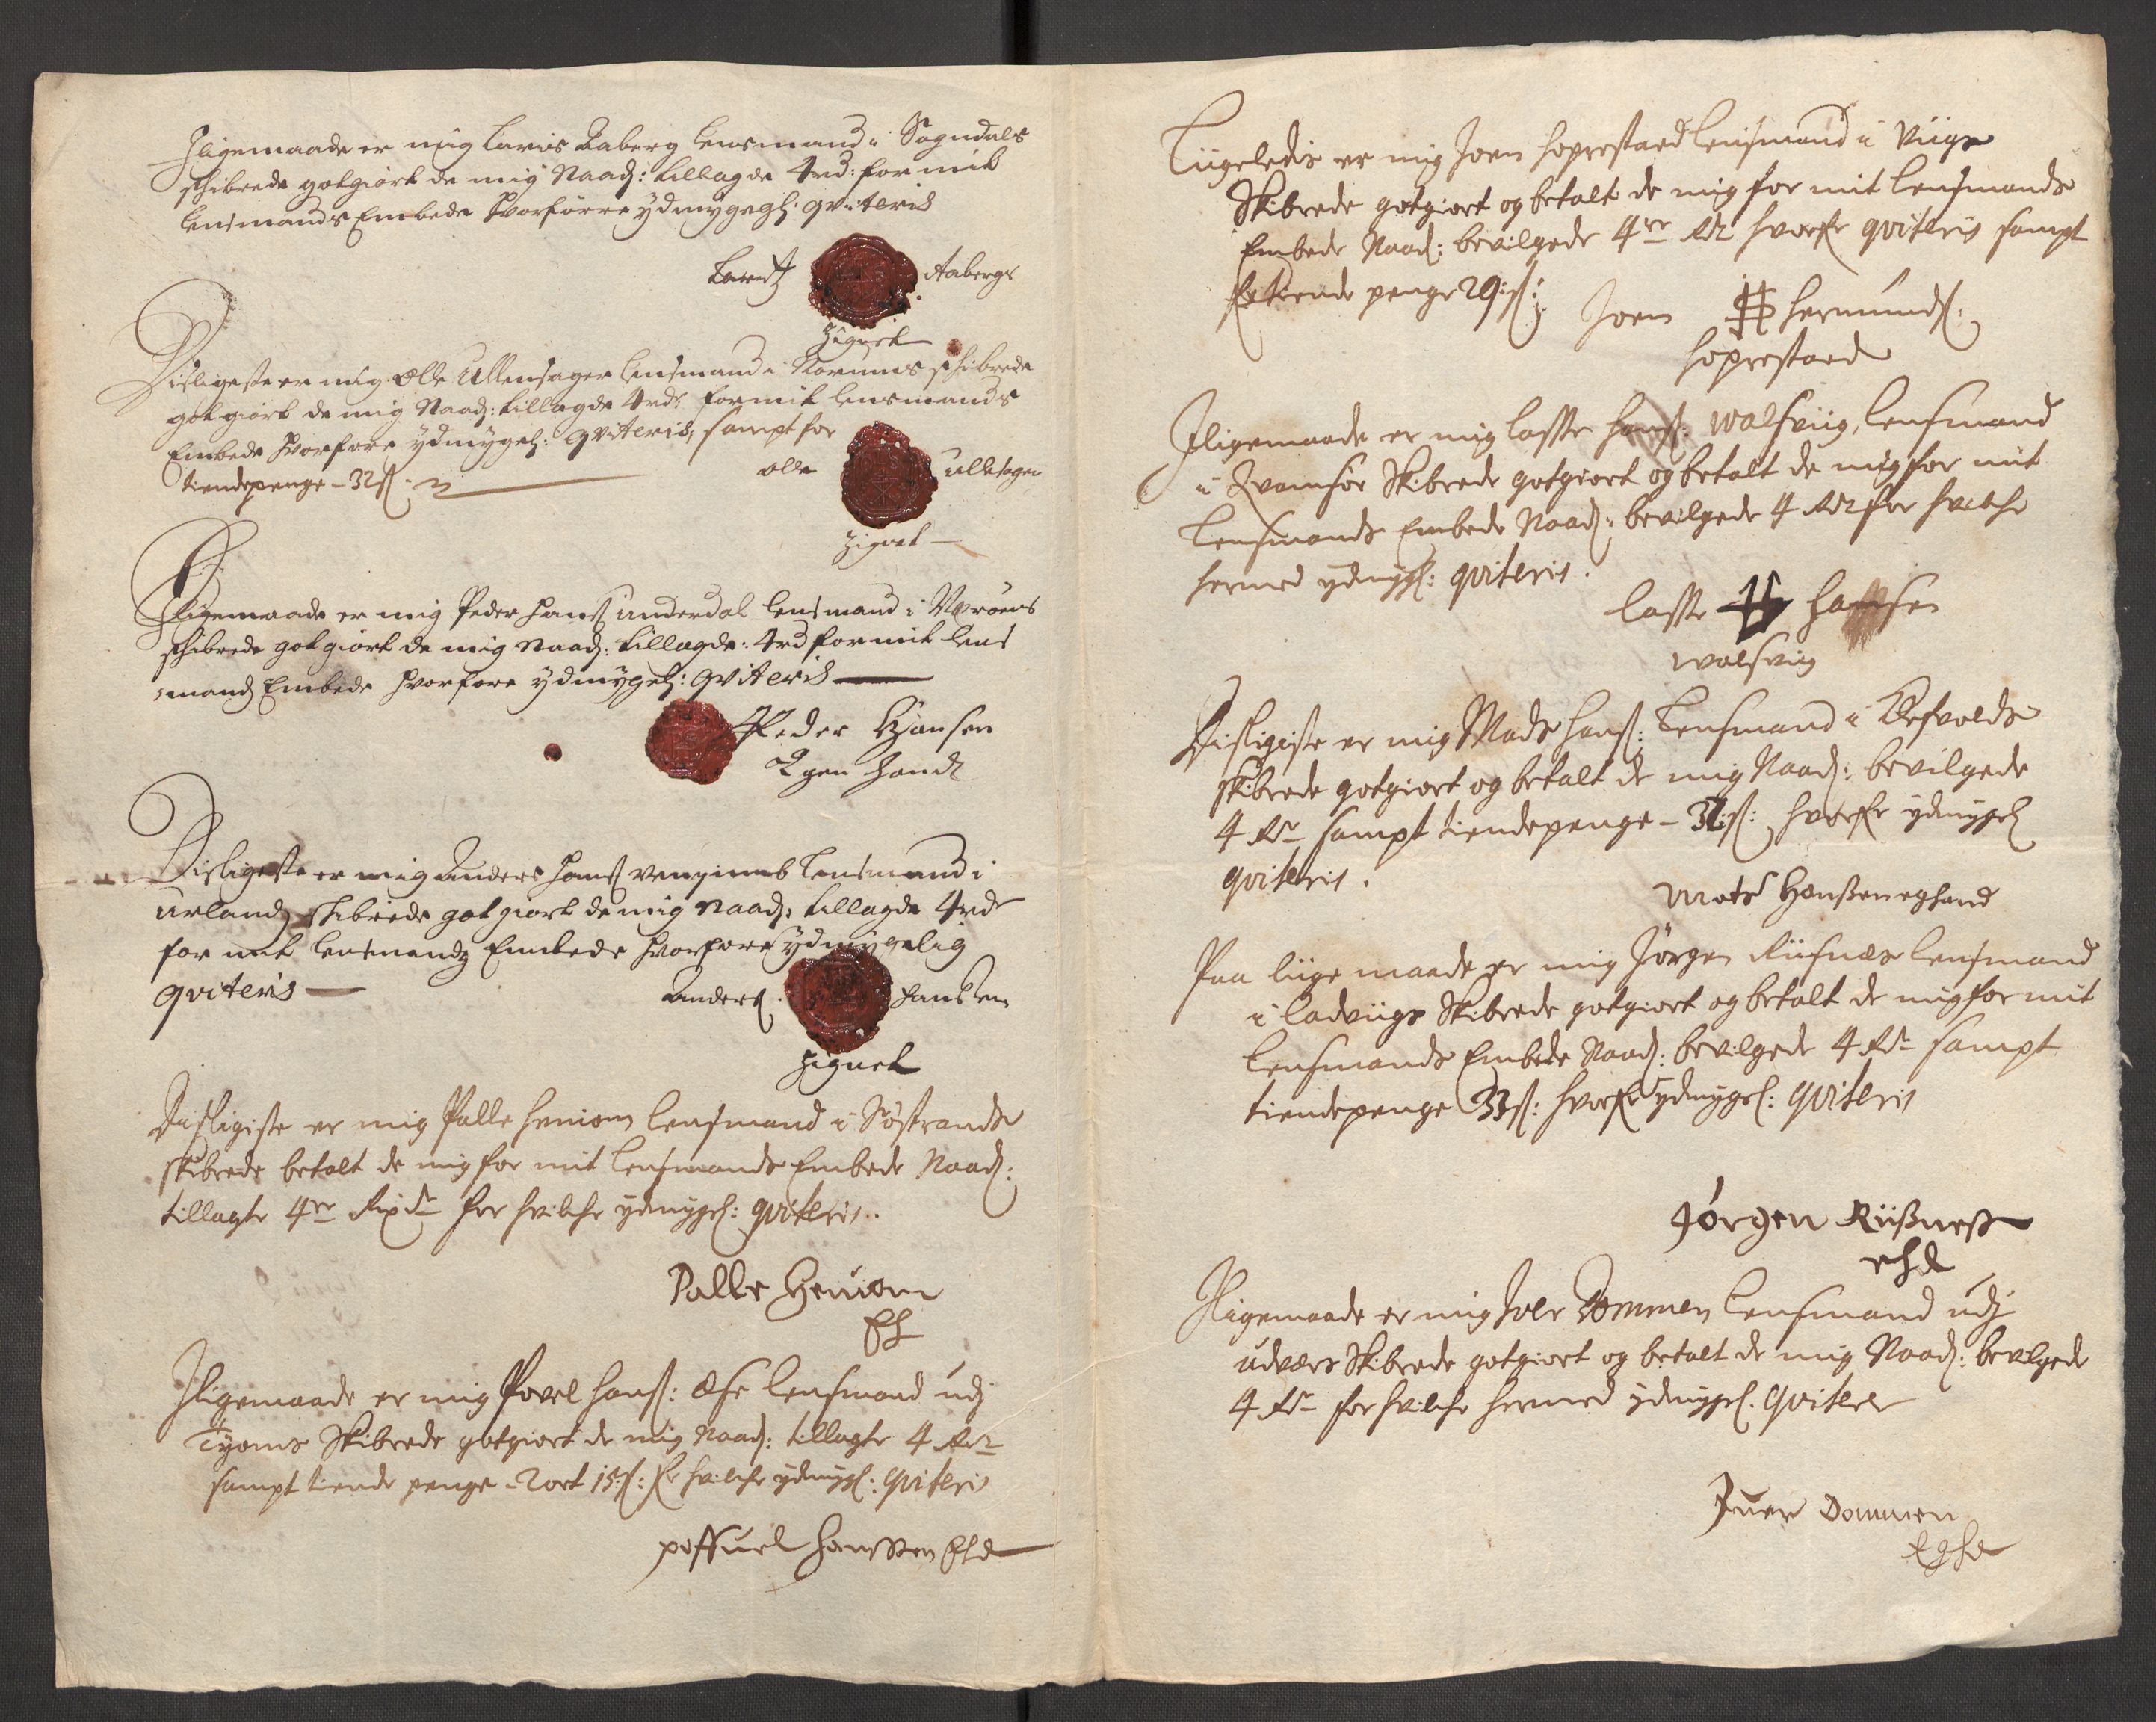 Jligemaade er mig Laris Aaberg lensmand i Sogndals
schibrede gotgiort de mig Naad: tillagde 4rd: for mit
lensmands Embede hvorforre ydmygeglig: qviteris
Laritz Aabergs
Zignet
Disligeste er mig Olle Ullensager lensmand i Norums schibrede
gotgiort de mig Naad: tillagde 4rd: for mit lensmands
Embede hvorfore ydmygel: qviteris, sampt for
tiendepenge - 32 s:
olle ullesager
Zignet
Jligemaade er mig Peder Hanss underdal lensmand i Nærøens
schibrede gotgiort de mig Naad: tillagde: 4rd for mit lens
mands Embede hvorfore ydmygel: qviteris
Peder Hansen
Egen Handt
Disligeste er mig Anders Hanss lensmand i
urlandz schibrede gotgiort de mig Naad: tillagde 4rdr
for mit lensmandz Embede hvorfore ydmygelig
qviteris
Anders Hanssen
Zignet
Disligiste er mig Palle Heniom lensmand i Søstrands
skibrede betalt de mig for mit lensmands Embede Naad:
tillagte 4re Rixdr for hvilche ydmygel: qviteris.
Palle Heniom
EH
Jligemaade er mig Povel Hanss: Æse lensmand udj
Tyoms Skibrede gotgiort de mig Naad: tillagte 4 Rdr
sampt tiende penge - 2 ort 15 s: for hvilche ydmygl: qviteris
poffuel Hanssen Ehd
Liigeledis er mig Joen Hoprestaed lensmand i Viigs
Skibrede gotgiort og betalt de mig for mit lensmands
Embede Naad: bevilgede 4re Rdr hvorfor qviteris sampt
for tiende penge 29 s:
Joen Hermunds:
Hoprestaed
Jligemaade er mig Lasse Hanss: Walsviig, lensmand
i Qvamsøe Skibrede gotgiort og betalt de mig for mit
lensmands Embede Naad: bevilgede 4 Rdr for hvilche
hermed ydmygl: qviteris.
Lasse Hansen
Walsviig
Disligiste er mig Mads Hanss: lensmand i Kefvolds
skibrede gotgiort og betalt de mig Naad: bevilgede
4 Rdr sampt tiendepenge - 31 s: hvorfor ydmygel
qviteris.
Mats Hanßen eghand
Paa liige maade er mig Jørgen Riisnæs lensmand
i Ladviigs Skibrede gotgiort og betalt de mig for mit
lensmands Embede Naad: bevilgede 4 Rdr sampt
tiendepenge 33 s: hvorfor ydmygel: qviteris
Jørgen Riißneß
ehd
Jligemaade er mig Iver Dommen lensmand udj
udvers Skibrede gotgiort og betalt de mig Naad: bevilgede
4 Rdr for hvilche hermed ydmygel. qviterer
Iuer Dommen
Eghd